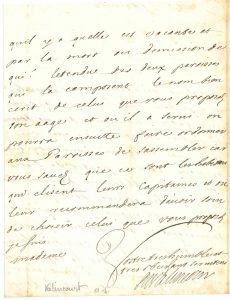 quil y a quelle est vacantes et
par la mort ou demission de
qui letendue des deux paroisses
qui la composent le nom bien
ecrit de celuy que vous proposez
son aage et ou il a servi on
pourra ensuitte faire ordonner
aux Paroisses de sassembler car
vous sauez que ce sont les habitans
qui elisent leurs capitaines et on
leur recommandera davoir soin
de choisir celuy que vous proposez
je suis
madame
Vostre tres humble et
tres obeissant serviteur
Valincourt